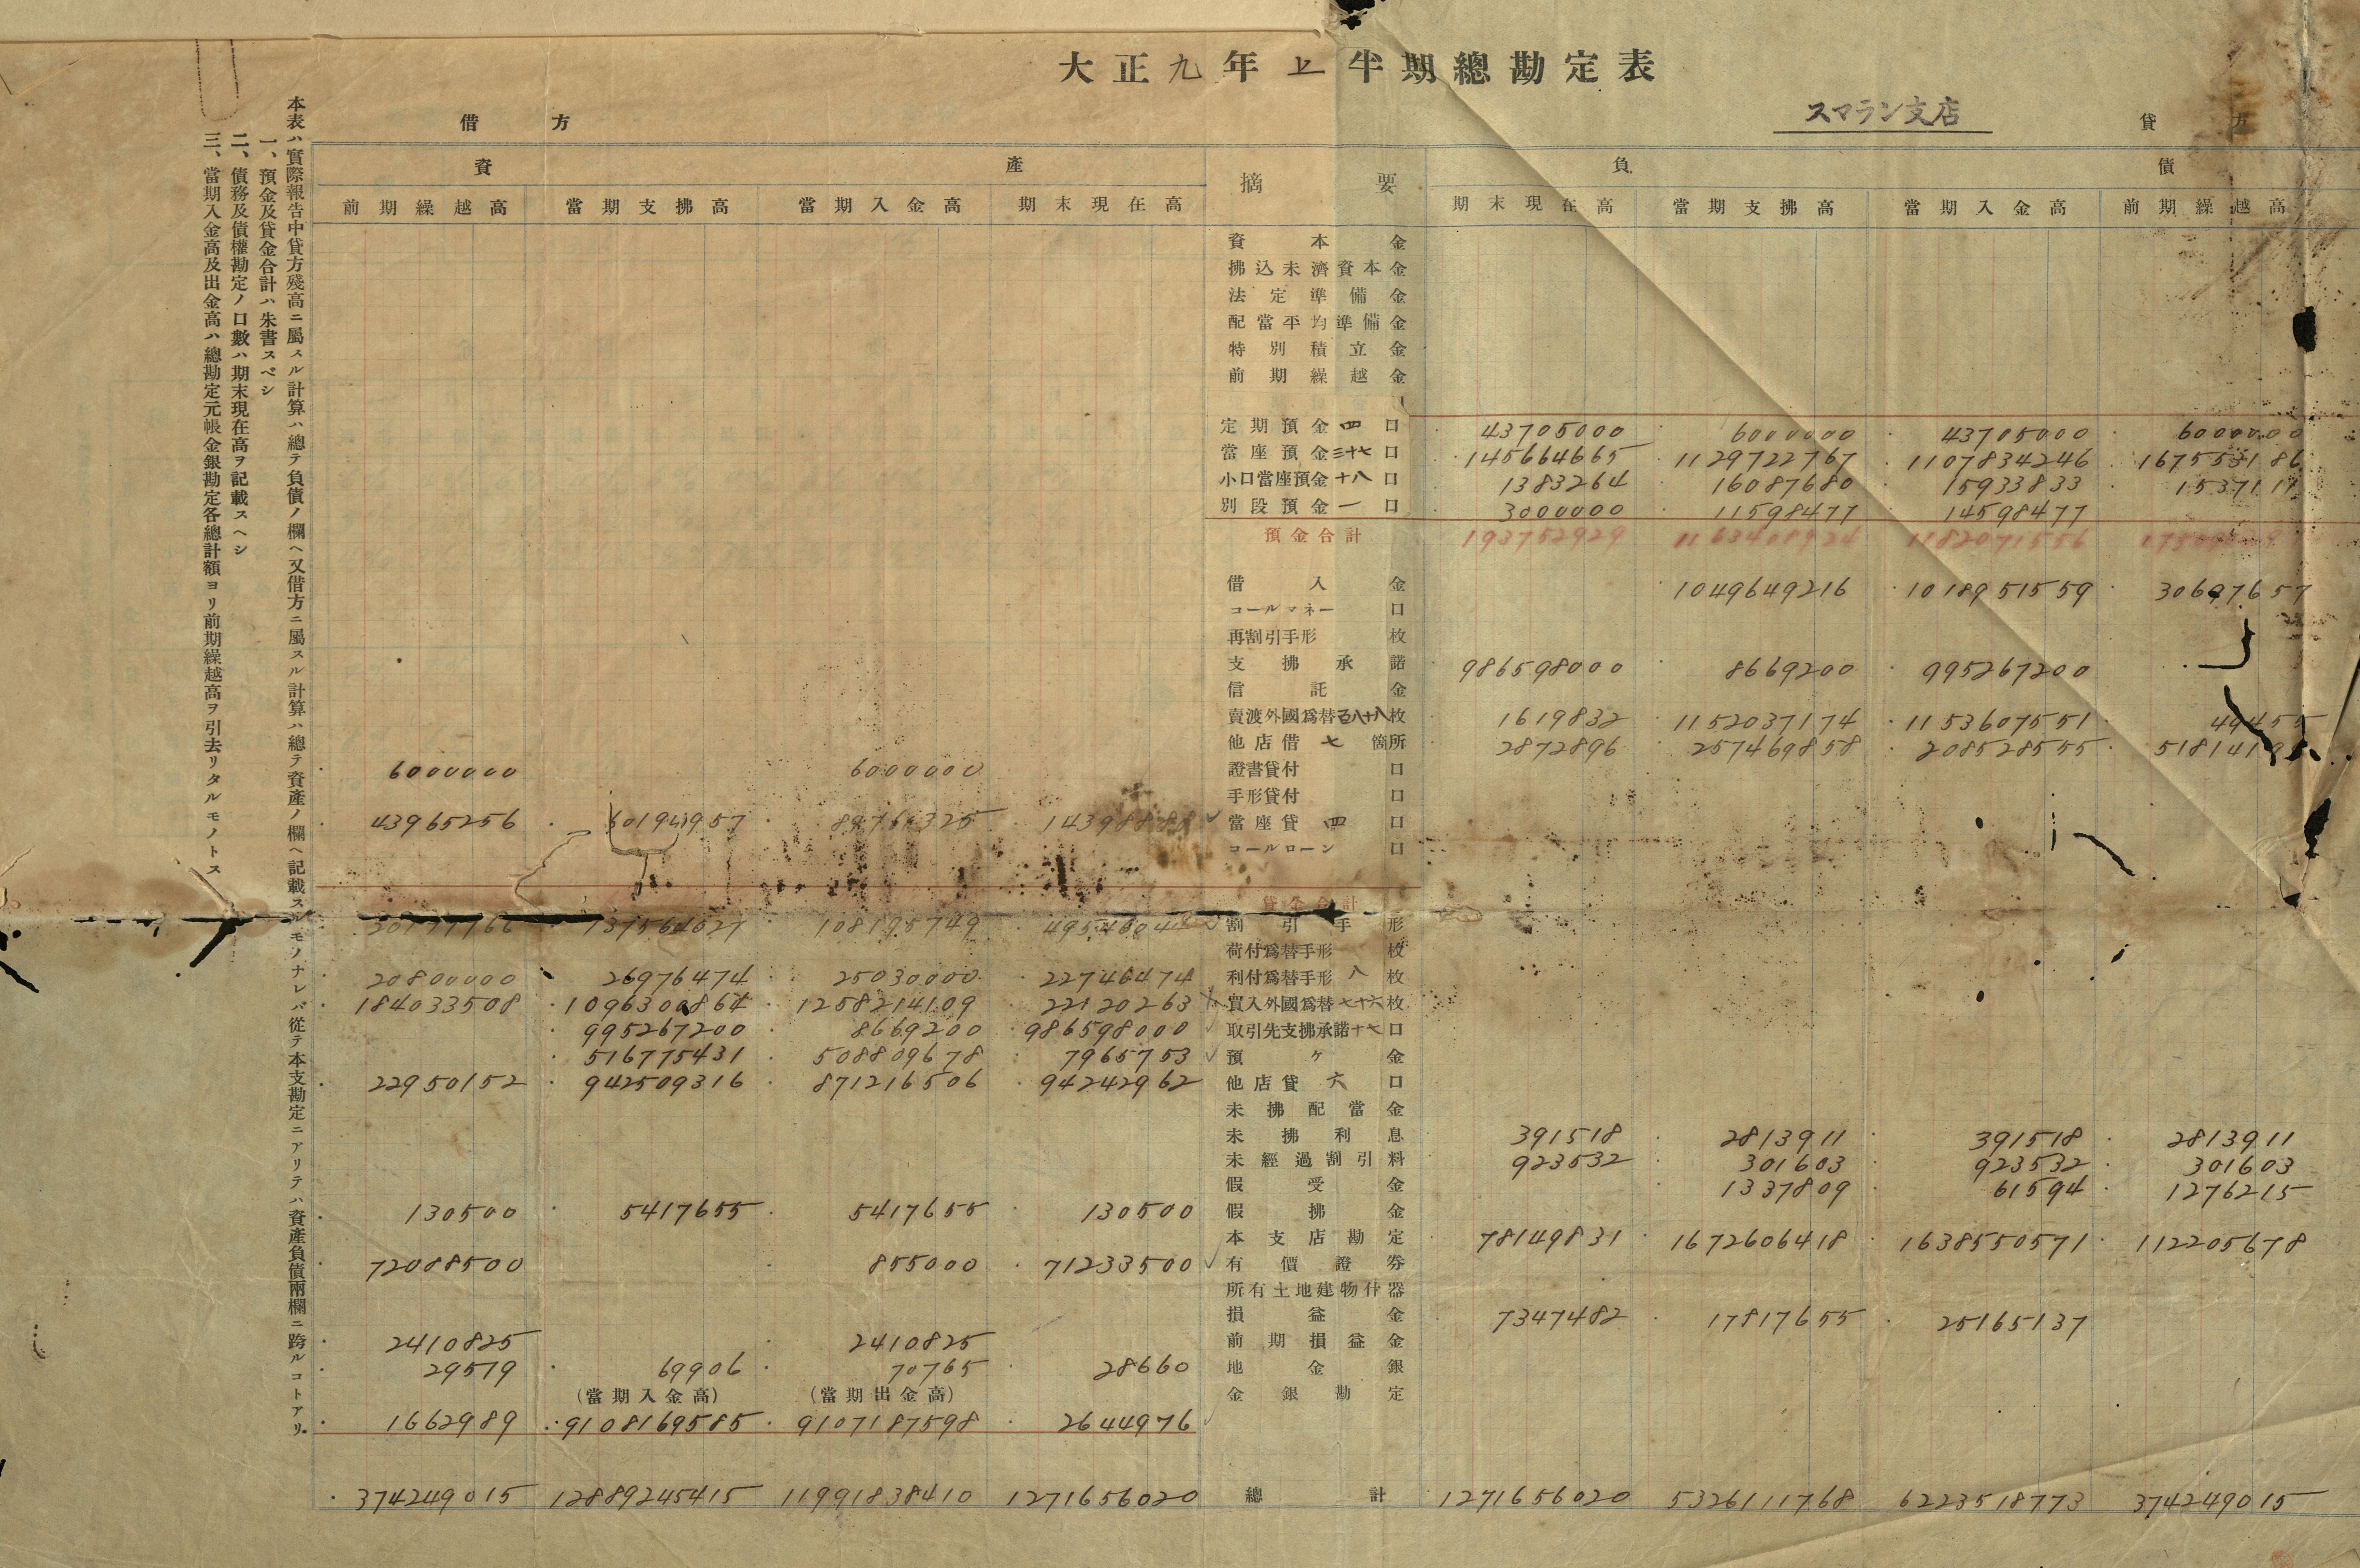 大正九年上半期總勘定表
スマラン支店
借方
貸方
資產
摘要
負債
前期繰越高 當期支拂高 當期入金高 期末現在高 期末現在高 當期支拂高 當期入金高 前期繰越高
資本金
拂込未濟資本金
法定準備金
配當平均準備金
特別積立金
前期繰越金
定期預金四口 43705000 6000000 43705000 6000000
當座預金三十七口 145664665 1129722767 1107834246 167553186
小口當座預金十八口 1383264 16087680 15933833 1537111
別段預金一口 3000000 11598477 14598477
預金合計 193752929 1163408924 1182071556
借入金 1049649216 1018951559 30697657
コールマネー口
再割引手形枚
支拂承諾 986598000 8669200 995267200
信託金
賣渡外國爲替百八十八枚 1619832 1152037174 1153607551 49455
他店借七箇所 2872896 257469858 208528555
6000000 6000000 證書貸付口
手形貸付口
43965256 當座貸四口
コールローン口
貸金合計
108195749 割引手形
荷付爲替手形枚
20800000 26976474 25030000 22746474 利付爲替手形八枚
184033508 1096300864 1258214109 22120263 買入外國爲替七十六枚
995267200 8669200 986598000 取引先支拂承諾十七口
516775431 508809678 7965753 預ケ金
22950152 942509316 871216506 94242962 他店貸六口
未拂配當金
未拂利息 391518 2813911 391518 2813911
未經過割引料 923532 301603 923532 301603
假受金 1337809 61594 1276215
130500 5417655 5417655 130500 假拂金
本支店勘定 78149831 1672606418 1638550571 112205678
72088500 855000 71233500 有價證券
所有土地建物什器
損益金 7347482 17817655 25165137
2410825 2410825 前期損益金
29519 69906 70765 28660 地金銀
(當期入金高) (當期出金高) 金銀勘定
1662989 9108169585 9107187598 2644976
374249015 12889245415 11991838410 1271656020 總計 1271656020 5326111768 6223518773 374249015
本表ハ實際報告中貸方殘高ニ屬スル計算ハ總テ負債ノ欄ヘ又借方ニ屬スル計算ハ總テ資產ノ欄ヘ記載スルモノナレバ從テ本支勘定ニアリテハ資產負債兩欄ニ跨ルコトアリ
一、預金及貸金合計ハ朱書スベシ
二、債務及債權勘定ノ口數ハ期末現在高ヲ記載スヘシ
三、當期入金高及出金高ハ總勘定元帳金銀勘定各總計額ヨリ前期繰越高ヲ引去リタルモノトス